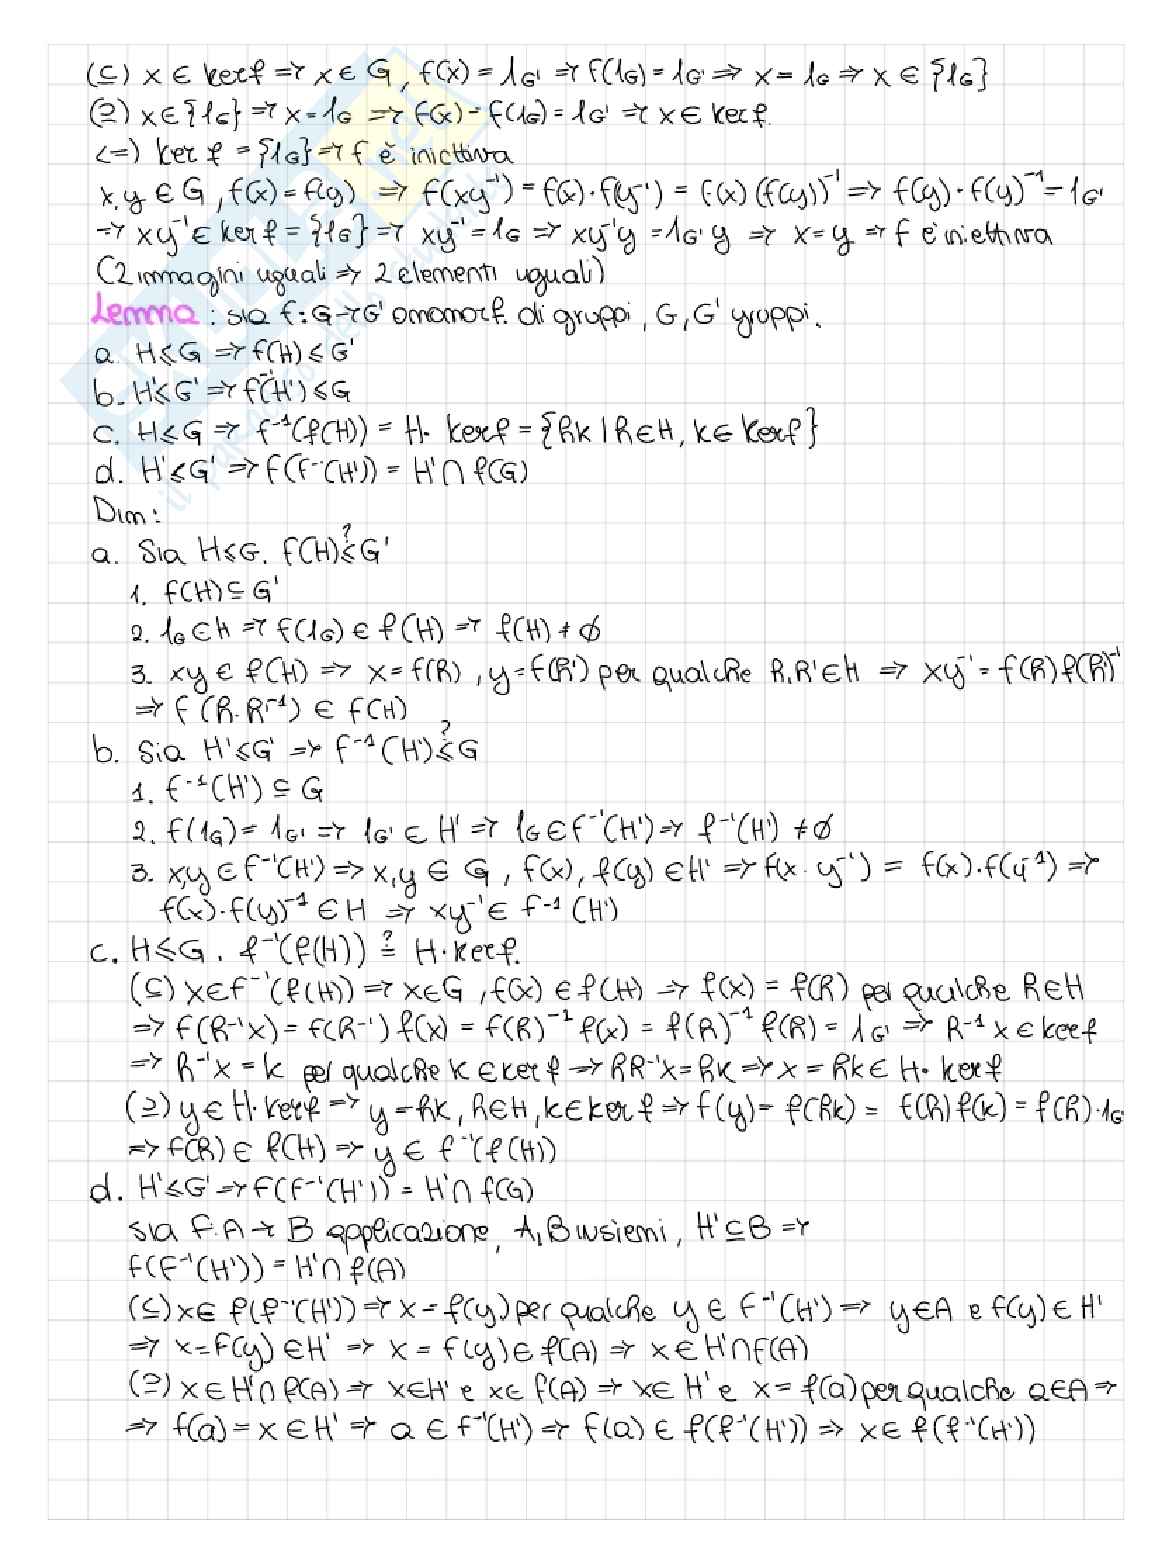 (⊆) x ∈ kerf ⇒ x ∈ G, f(x) = 1G' ⇒ f(1G) = 1G' ⇒ x = 1G ⇒ x ∈ {1G}
(⊇) x ∈ {1G} ⇒ x = 1G ⇒ f(x) = f(1G) = 1G' ⇒ x ∈ kerf.
<=) ker f = {1G} ⇒ f è iniettiva
x, y ∈ G, f(x) = f(y) ⇒ f(xy⁻¹) = f(x)·f(y⁻¹) = f(x)(f(y))⁻¹ ⇒ f(y)·f(y)⁻¹ = 1G'
⇒ xy⁻¹ ∈ kerf = {1G} ⇒ xy⁻¹ = 1G ⇒ xy⁻¹y = 1G' y ⇒ x = y ⇒ f è iniettiva
(2 immagini uguali ⇒ 2 elementi uguali)
Lemma : sia f: G → G' omomorf. di gruppi, G, G' gruppi.
a. H ≤ G ⇒ f(H) ≤ G'
b. H' ≤ G' ⇒ f⁻¹(H') ≤ G
c. H ≤ G ⇒ f⁻¹(f(H)) = H· kerf = {hk | h ∈ H, k ∈ kerf}
d. H' ≤ G' ⇒ f(f⁻¹(H')) = H' ∩ f(G)
Dim:
a. Sia H ≤ G. f(H) ≤? G'
1. f(H) ⊆ G'
2. 1G ∈ H ⇒ f(1G) ∈ f(H) ⇒ f(H) ≠ ∅
3. xy ∈ f(H) ⇒ x = f(h), y = f(h') per qualche h, h' ∈ H ⇒ xy⁻¹ = f(h) f(h)⁻¹
⇒ f(h·h⁻¹) ∈ f(H)
b. Sia H' ≤ G' ⇒ f⁻¹(H') ≤? G
1. f⁻¹(H') ⊆ G
2. f(1G) = 1G' ⇒ 1G' ∈ H' ⇒ 1G ∈ f⁻¹(H') ⇒ f⁻¹(H') ≠ ∅
3. x,y ∈ f⁻¹(H') ⇒ x, y ∈ G, f(x), f(y) ∈ H' ⇒ f(x·y⁻¹) = f(x)·f(y⁻¹) ⇒
f(x)·f(y)⁻¹ ∈ H ⇒ xy⁻¹ ∈ f⁻¹(H')
c. H ≤ G. f⁻¹(f(H)) =? H·kerf.
(⊆) x ∈ f⁻¹(f(H)) ⇒ x ∈ G, f(x) ∈ f(H) ⇒ f(x) = f(h) per qualche h ∈ H
⇒ f(h⁻¹x) = f(h⁻¹) f(x) = f(h)⁻¹ f(x) = f(h)⁻¹ f(h) = 1G' ⇒ h⁻¹x ∈ kerf
⇒ h⁻¹x = k per qualche k ∈ kerf ⇒ hh⁻¹x = hk ⇒ x = hk ∈ H· kerf
(⊇) y ∈ H·kerf ⇒ y = hk, h ∈ H, k ∈ kerf ⇒ f(y) = f(hk) = f(h) f(k) = f(h)·1G
⇒ f(h) ∈ f(H) ⇒ y ∈ f⁻¹(f(H))
d. H' ≤ G' ⇒ f(f⁻¹(H')) = H' ∩ f(G)
sia f: A → B applicazione, A, B insiemi, H' ⊆ B ⇒
f(f⁻¹(H')) = H' ∩ f(A)
(⊆) x ∈ f(f⁻¹(H')) ⇒ x = f(y) per qualche y ∈ f⁻¹(H') ⇒ y ∈ A e f(y) ∈ H'
⇒ x = f(y) ∈ H' ⇒ x = f(y) ∈ f(A) ⇒ x ∈ H' ∩ f(A)
(⊇) x ∈ H' ∩ f(A) ⇒ x ∈ H' e x ∈ f(A) ⇒ x ∈ H' e x = f(a) per qualche a ∈ A ⇒
⇒ f(a) = x ∈ H' ⇒ a ∈ f⁻¹(H') ⇒ f(a) ∈ f(f⁻¹(H')) ⇒ x ∈ f(f⁻¹(H'))